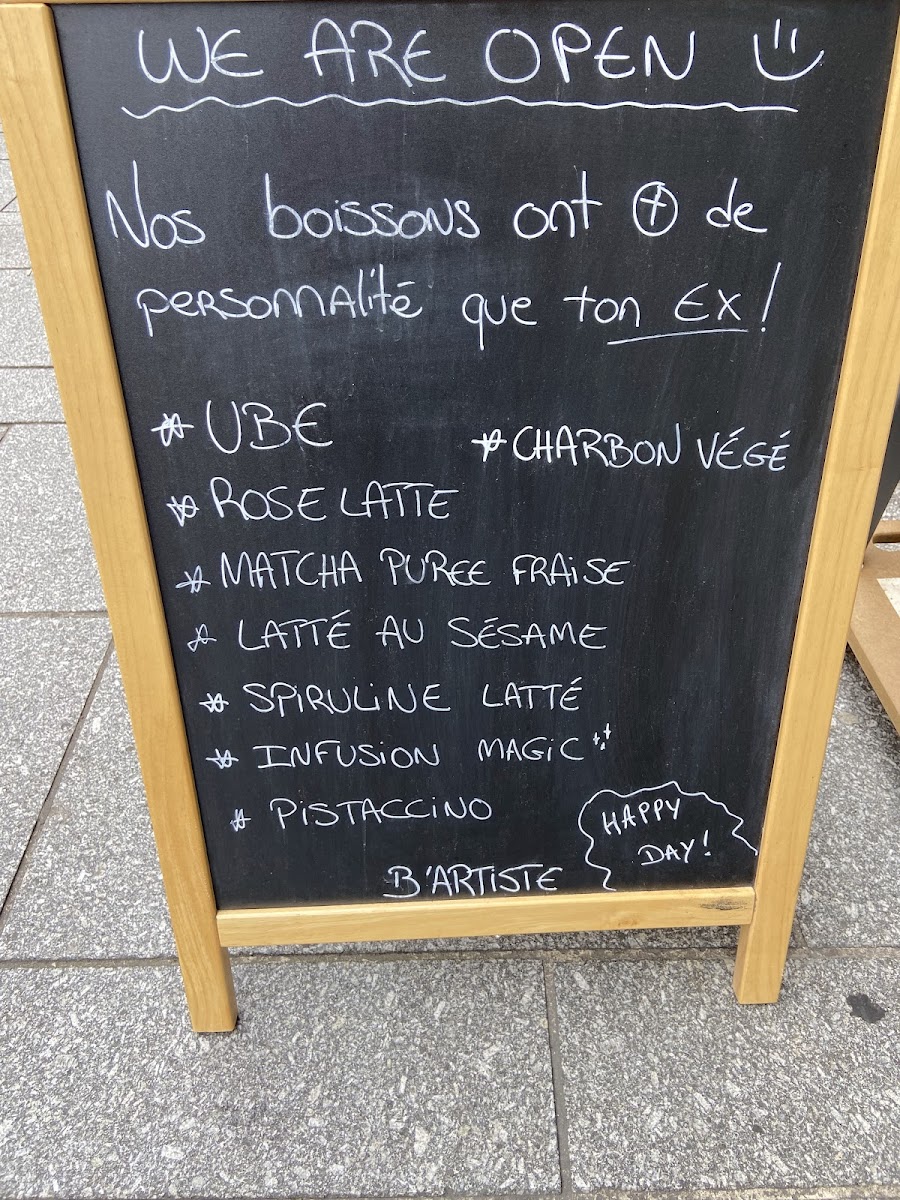 WE ARE OPEN
Nos boissons ont + de
personnalité que ton EX!
UBE
CHARBON VÉGÉ
ROSE LATTE
MATCHA PUREE FRAISE
LATTÉ AU SÉSAME
SPIRULINE LATTÉ
INFUSION MAGIC
PISTACCINO
HAPPY
DAY!
B'ARTISTE